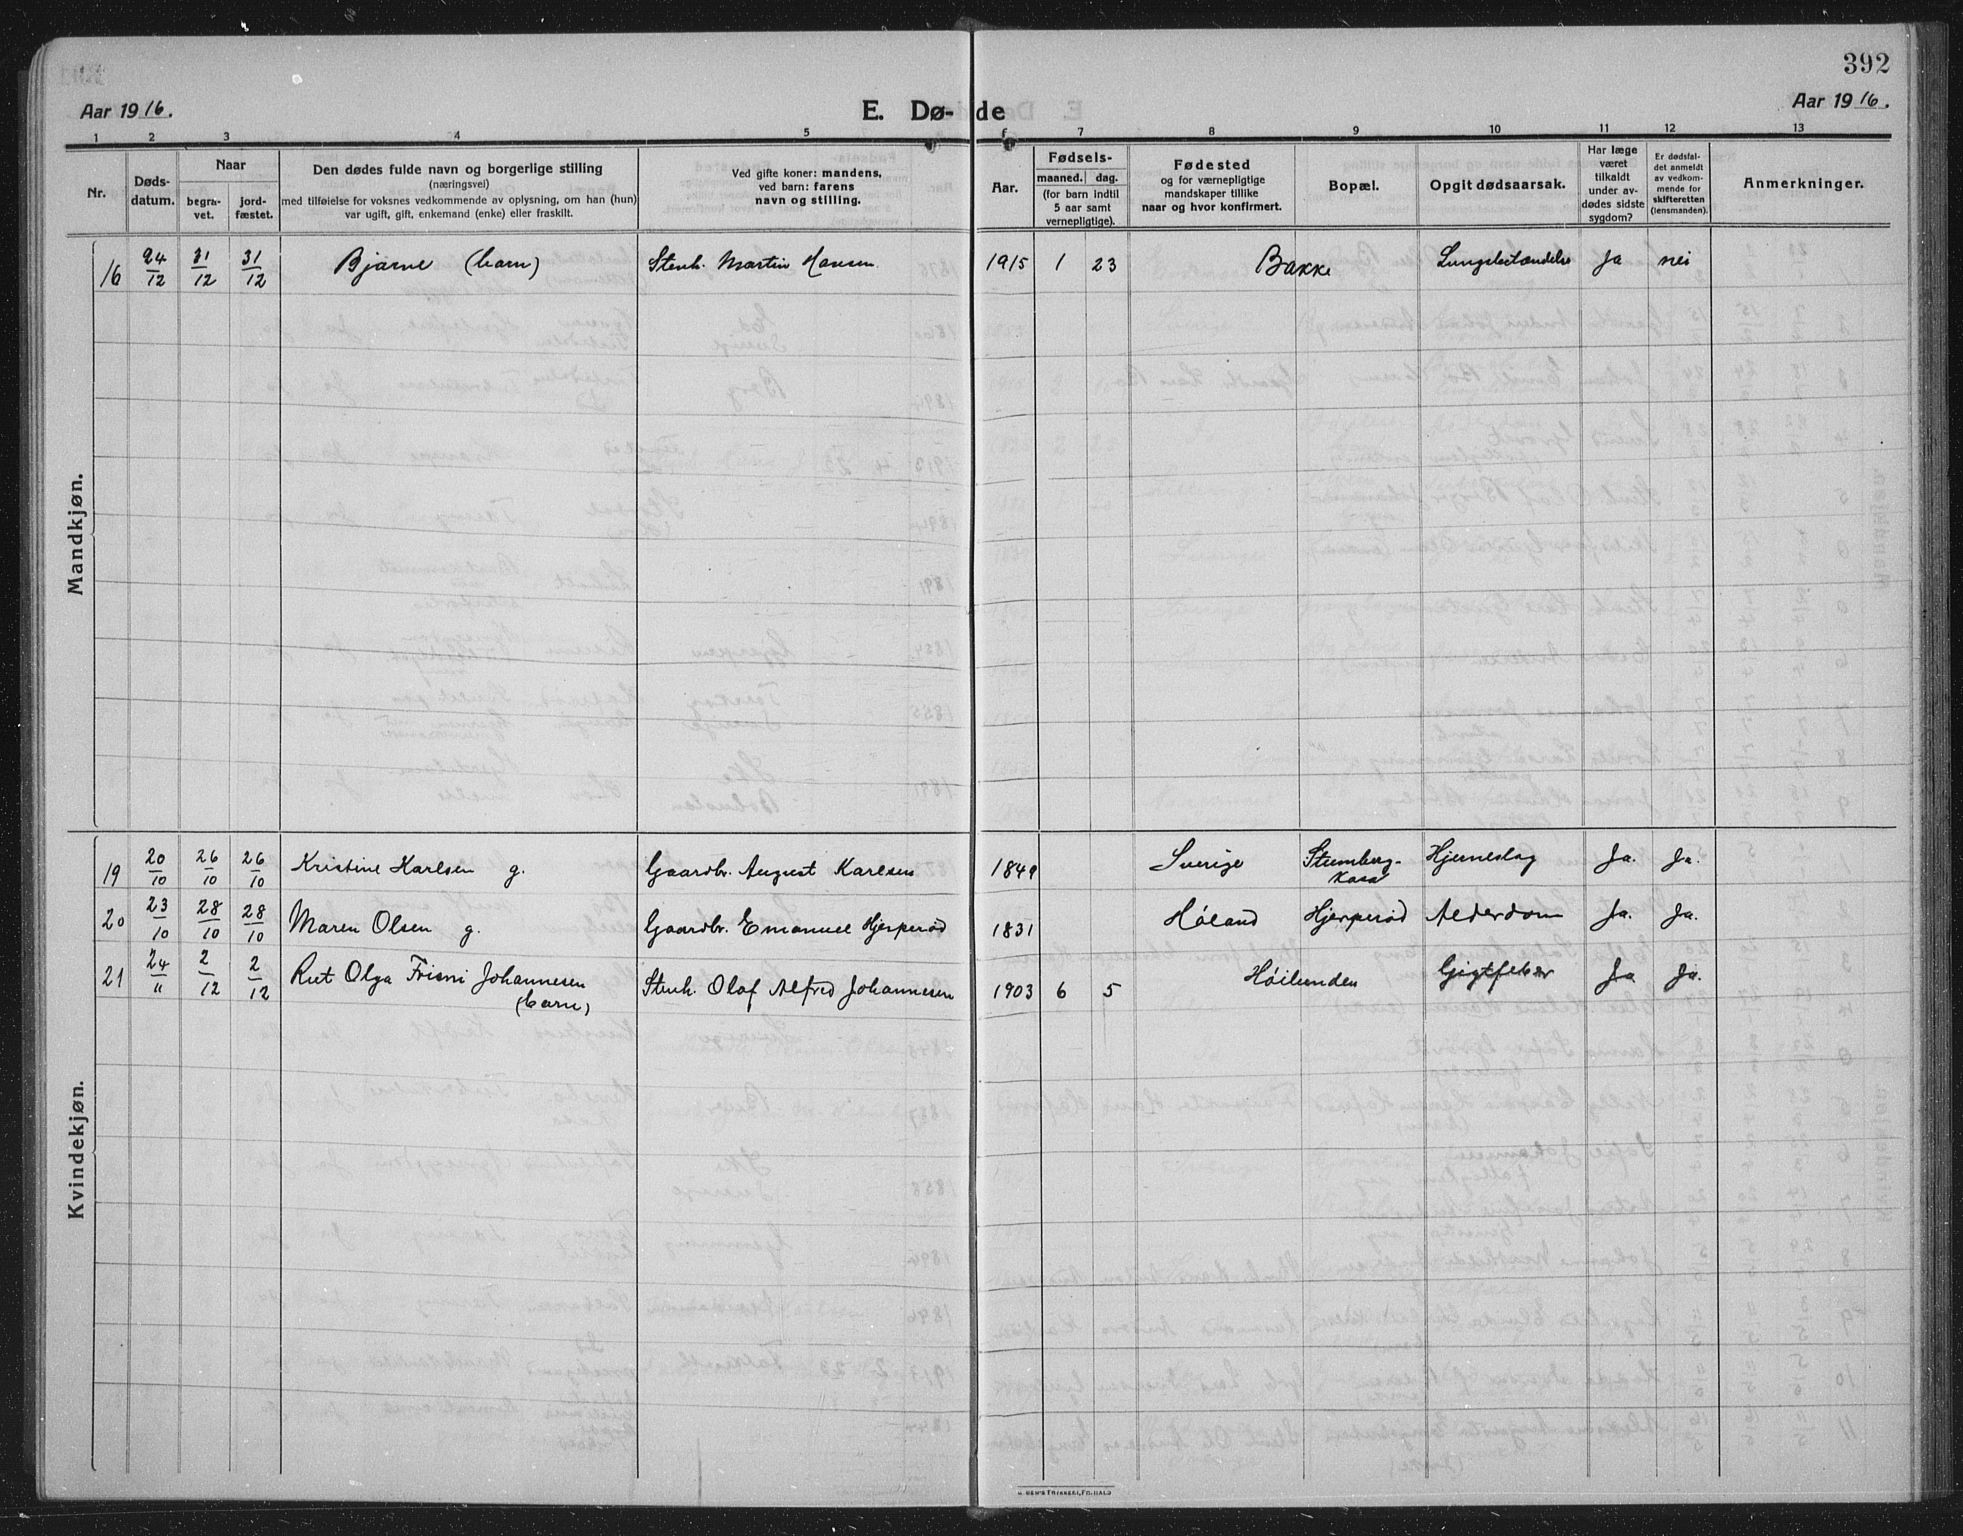 392
Aar 1916.
E. Dø- de
Aar 1916.
1 2 3 4 5 6 7 8 9 10 11 12 13
Nr.
Døds-
datum.
Naar
begra-
vet.
jord-
fæstet.
Den dødes fulde navn og borgerlige stilling
(næringsvei)
med tilføielse for voksnes vedkommende av oplysning, om han (hun)
var ugift, gift, enkemand (enke) eller fraskilt.
Ved gifte koner: mandens,
ved barn: farens
navn og stilling.
Aar.
Fødsels-
maaned. dag.
(for barn indtil
5 aar samt
vernepligtige).
Fødested
og for værnepligtige
mandskaper tillike
naar og hvor konfirmert.
Bopæl.
Opgit dødsaarsak.
Har læge
været
tilkaldt
under av-
dødes sidste
sygdom?
Er dødsfal-
det anmeldt
av vedkom-
mende for
skifteretten
(lensmanden).
Anmerkninger.
Mandkjøn.
16 24/12 31/12 31/12 Bjarne (barn) Stenh. Martin Hansen 1915 1 23 Bakke Lungebetændelse Ja nei
Kvindekjøn.
19 20/10 26/10 26/10 Kristine Karlsen g. Gaardbr. August Karlsen 1849 Sverige Stumberg-
kasa Hjerneslag Ja. Ja.
20 23/10 28/10 28/10 Maren Olsen g. Gaardbr. Emanuel Hjerperød 1831 Høland Hjerperød Alderdom Ja. Ja.
21 24/11 2/12 2/12 Rut Olga Johannesen
(barn) Stenh. Olaf Alfred Johannesen 1903 6 5 Høilunden Gigtfeber Ja Ja.